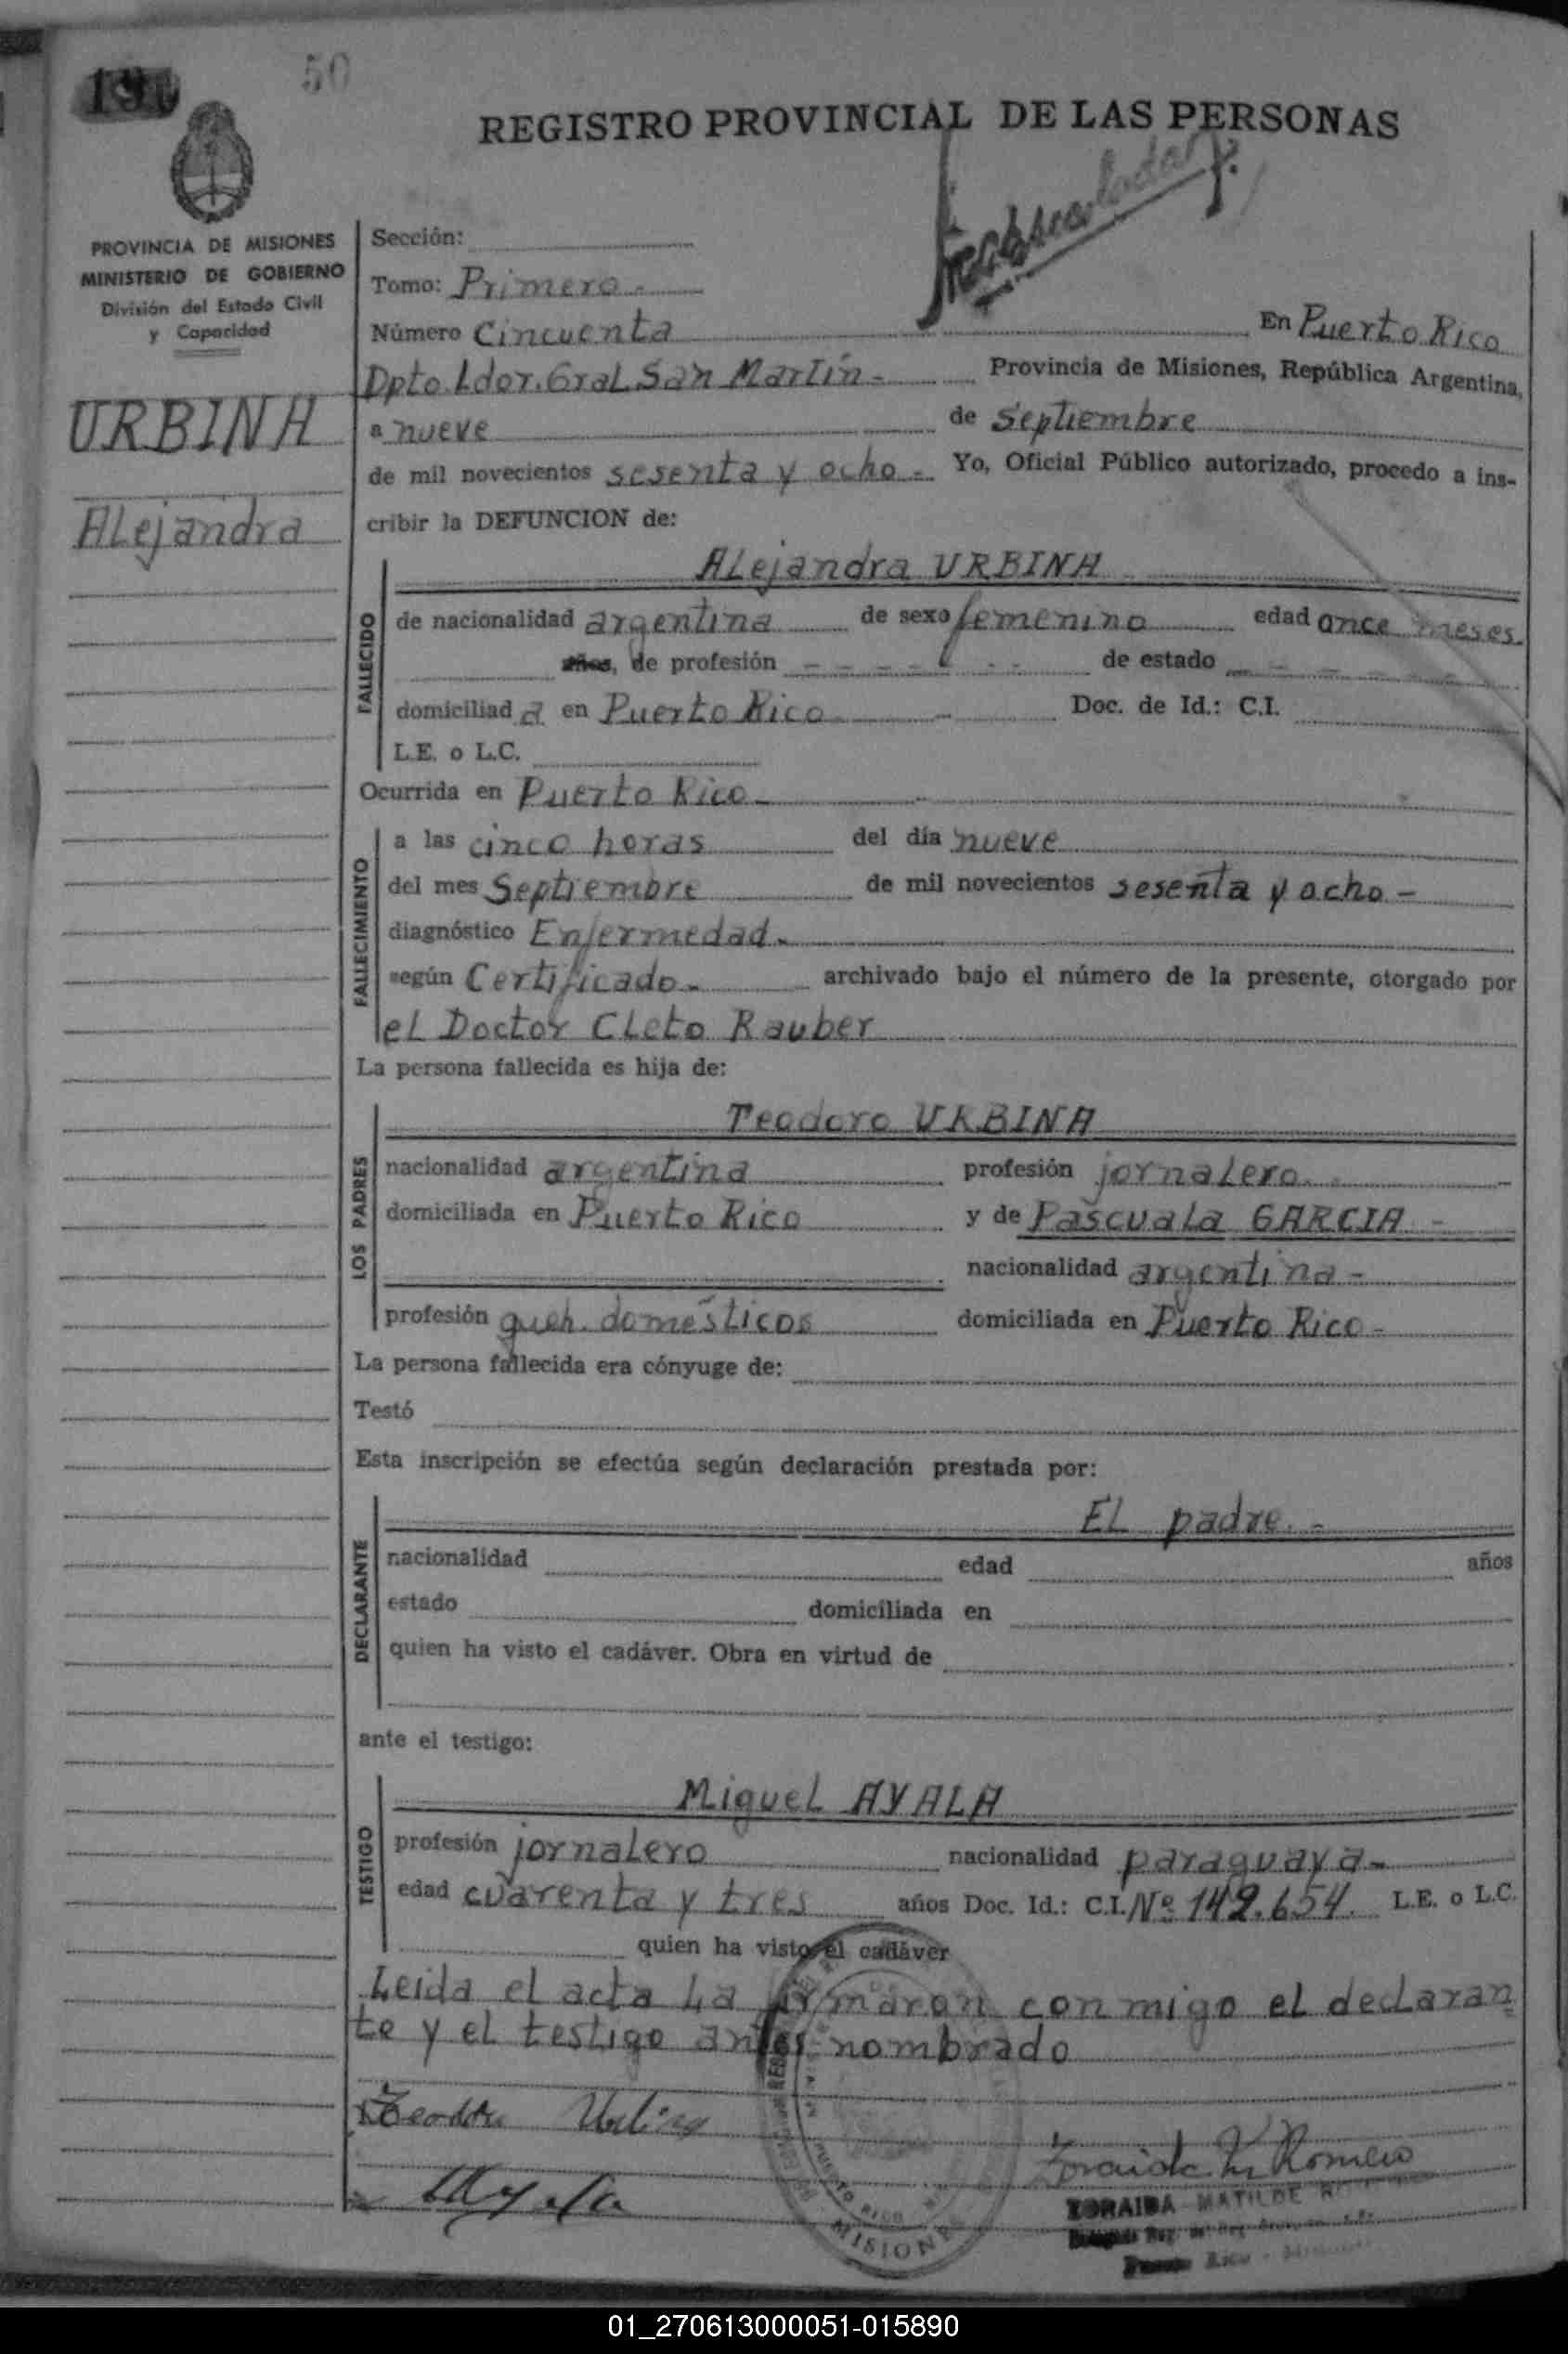 50
REGISTRO PROVINCIAL DE LAS PERSONAS
PROVINCIA DE MISIONES
MINISTERIO DE GOBIERNO
División del Estado Civil
y Capacidad
URBINA
Alejandra
Sección:
Tomo: Primero.
Número Cincuenta En Puerto Rico
Dpto. Ldor. Gral San Martín - Provincia de Misiones, República Argentina,
a nueve de Septiembre
de mil novecientos sesenta y ocho - Yo, Oficial Público autorizado, procedo a ins-
cribir la DEFUNCION de:
Alejandra URBINA
FALLECIDO
de nacionalidad argentina de sexo femenino edad once meses.
años, de profesión - - - - - - de estado - - - - - -
domiciliada en Puerto Rico. Doc. de Id.: C.I.
L.E. o L.C.
Ocurrida en Puerto Rico
FALLECIMIENTO
a las cinco horas del día nueve
del mes Septiembre de mil novecientos sesenta y ocho -
diagnóstico Enfermedad.
según Certificado. archivado bajo el número de la presente, otorgado por
el Doctor Cleto Rauber
La persona fallecida es hija de:
Teodoro URBINA
LOS PADRES
nacionalidad argentina profesión jornalero.
domiciliada en Puerto Rico y de Pascuala GARCIA -
nacionalidad argentina -
profesión queh. domésticos domiciliada en Puerto Rico -
La persona fallecida era cónyuge de:
Testó
Esta inscripción se efectúa según declaración prestada por:
El padre. -
DECLARANTE
nacionalidad edad años
estado domiciliada en
quien ha visto el cadáver. Obra en virtud de
ante el testigo:
Miguel AYALA
TESTIGO
profesión jornalero nacionalidad paraguaya -
edad cuarenta y tres años Doc. Id.: C.I. Nº 149.654. L.E. o L.C.
quien ha visto el cadáver
Leida el acta La firmaron conmigo el declaran
te y el testigo antes nombrado
Urbina
Zoraida M Romero
ZORAIDA MATILDE
Puerto Rico
MISIONES
01_270613000051-015890